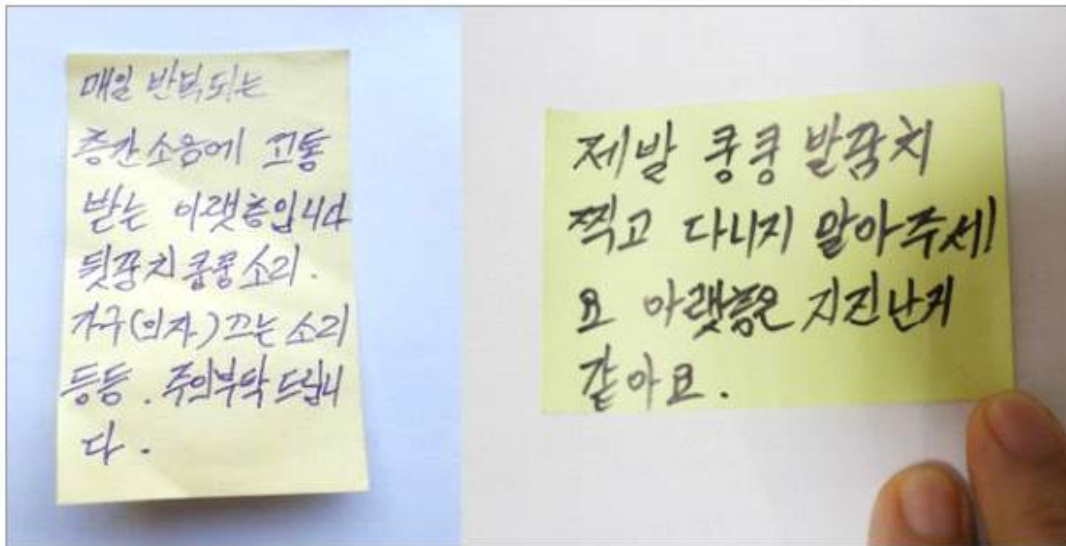 매일 반복되는
층간소음에 고통
받는 아랫층입니다
뒷꿈치 쿵쿵소리.
가구(의자.)끄는 소리
등등. 주의부탁드립니
다.
제발 쿵쿵 발꿈치
찍고 다니지 말아주세!
요 아랫층은 지진난거
같아요.